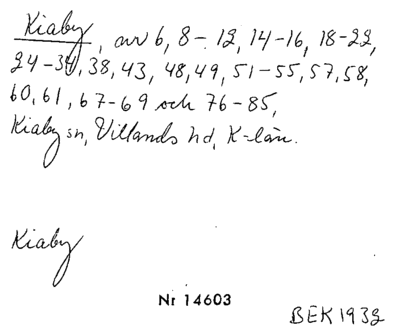 Kiaby, avv 6, 8-12, 14-16, 18-22,
24-34, 38, 43, 48, 49, 51-55, 57, 58,
60, 61, 67-69 och 76-85,
Kiaby sn, Villands hd, K-län.
Kiaby
Nr 14603
BEK 1932